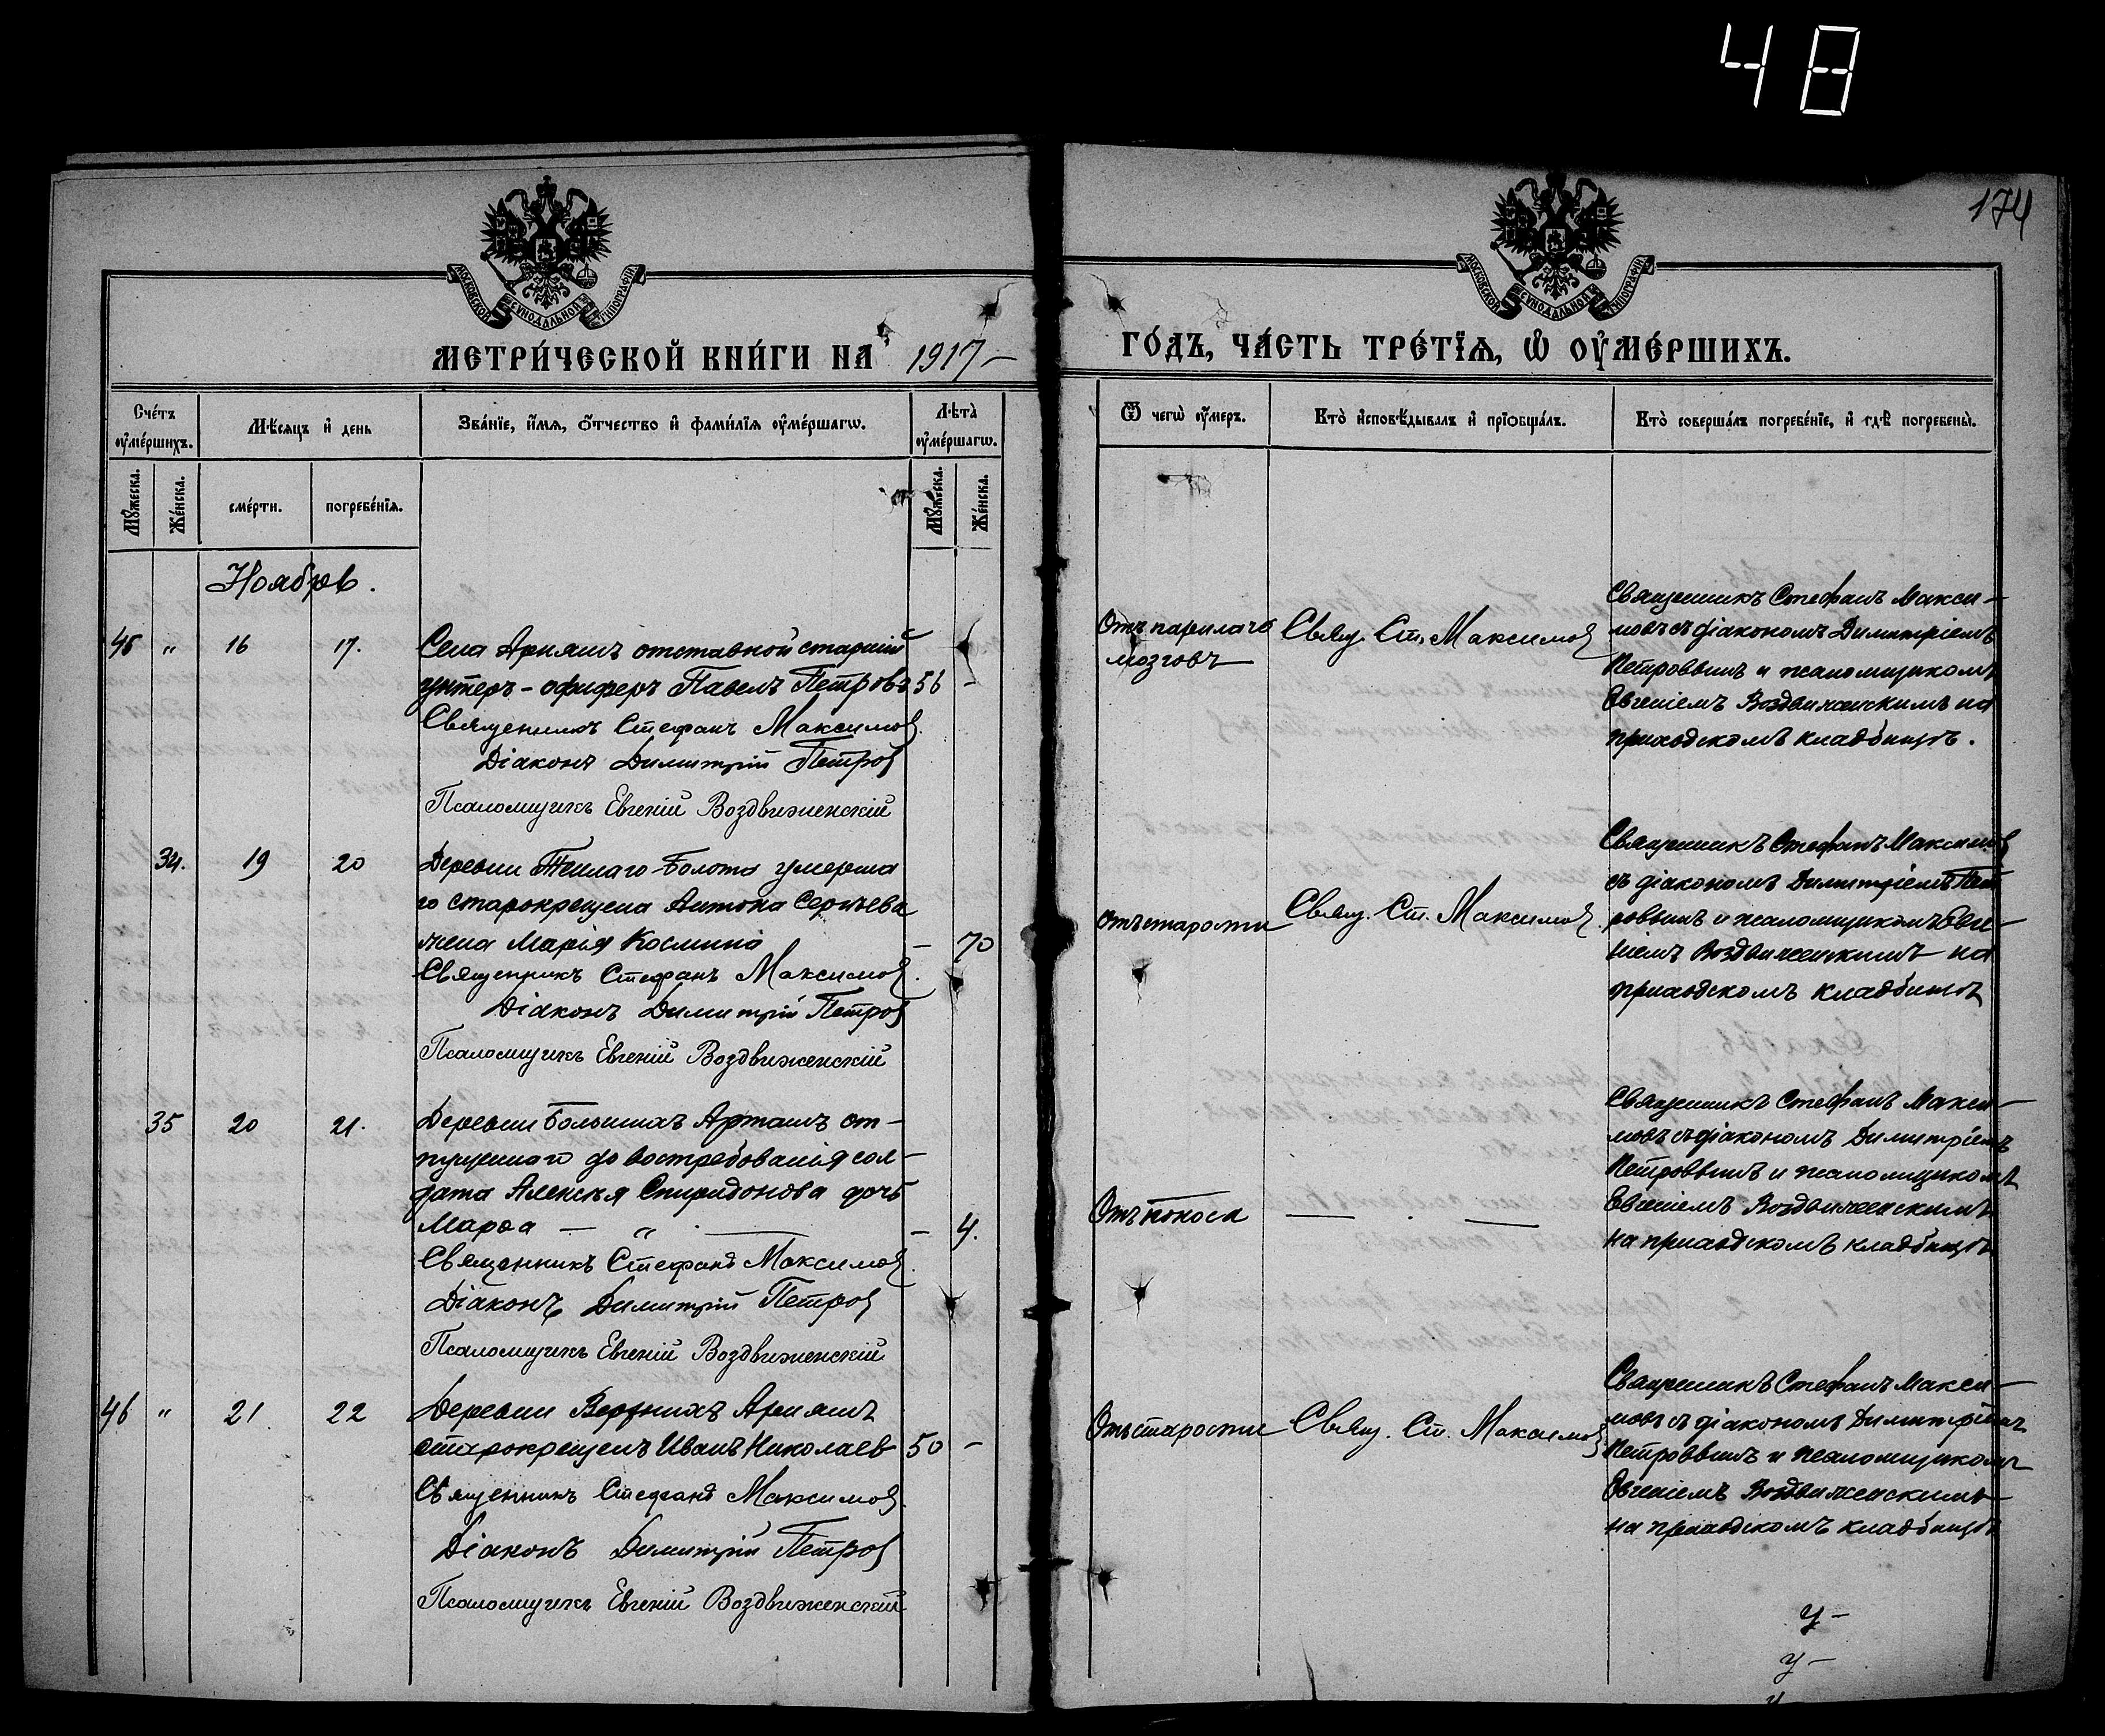 48
174
МОСКОВСКОЙ СѴНОДАЛЬНОЙ ТИПОГРАФІИ
МОСКОВСКОЙ СѴНОДАЛЬНОЙ ТИПОГРАФІИ
МЕТРИ́ЧЕСКОЙ КНИ́ГИ НА 1917 –
ГО́ДЪ, ЧА́СТЬ ТРЕ́ТЇѦ, Ѽ ОУ҆МЕ́РШИХЪ.
Сче́тъ оу҆ме́ршихъ.
Мѣ́сѧцъ и҆ де́нь
Зва́нїе, и҆́мѧ, ѻ҆́тчество и҆ фами́лїѧ оу҆ме́ршагѡ.
Лѣ́та̀ оу҆ме́ршагѡ.
Ѿ чегѡ̀ оу҆́меръ.
Кто̀ и҆сповѣ́дывалъ и҆ прїѡбща́лъ.
Кто̀ соверша́лъ погребе́нїе, и҆ гдѣ̀ погребены̀.
Мꙋ́жеска.
Же́нска.
сме́рти.
погребе́нїѧ.
Мꙋ́жеска.
Же́нска.
Ноябрь.
45 " 16 17. Села Арняшъ отставной старшій
унтеръ-офицеръ Павелъ Петровъ 56 -
Священникъ Стефанъ Максимов.
Діаконъ Димитрій Петров
Псаломщикъ Евгеній Воздвиженскій
Отъ паралича
мозговъ
Свящ. Ст. Максимов
Священникъ Стефанъ Макси-
мовъ съ діакономъ Димитріемъ
Петровымъ и псаломщикомъ
Евгеніемъ Воздвиженскимъ на
приходскомъ кладбищѣ.
34. 19 20 Деревни Теплаго-Болота умерша
го старокрещена Антона Сергѣева
жена Марія Космина – 70
Священникъ Стефанъ Максимов.
Діаконъ Димитрій Петров
Псаломщикъ Евгеній Воздвиженскій
Отъ старости
Свящ. Ст. Максимов.
Священникъ Стефанъ Максимов
съ діакономъ Димитріемъ Пет
ровымъ и псаломщикомъ Евге-
ніемъ Воздвиженскимъ на
приходскомъ кладбищѣ
35 20 21. Деревни Большихъ Арташъ от-
пущеннаго до востребованія сол-
дата Алексѣя Спиридонова дочь
Марѳа – " – – 4.
Священникъ Стефанъ Максимов.
Діаконъ Димитрій Петров
Псаломщикъ Евгеній Воздвиженскій
Отъ поноса — . —
Священникъ Стефанъ Макси-
мовъ съ діакономъ Димитріемъ
Петровымъ и псаломщикомъ
Евгеніемъ Воздвиженскимъ
на приходскомъ кладбищѣ
46 " 21. 22 Деревни Верхнихъ Арняшъ
старокрещенъ Иванъ Николаев 50 -
Священникъ Стефанъ Максимов.
Діаконъ Димитрій Петров
Псаломщикъ Евгеній Воздвиженскій
Отъ старости
Свящ. Ст. Максимов
Священникъ Стефанъ Макси-
мовъ съ діакономъ Димитріемъ
Петровымъ и псаломщикомъ
Евгеніемъ Воздвиженскимъ
на приходскомъ кладбищѣ
У-
У-